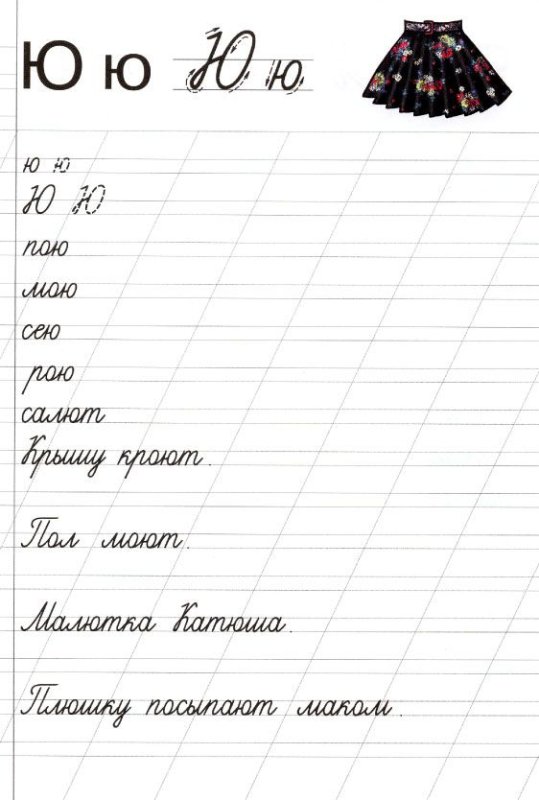 Ю ю Ю ю
ю ю
Ю Ю
пою
мою
сею
рою
салют
Крышу кроют.
Пол моют.
Малютка Катюша.
Плюшку посыпают маком.